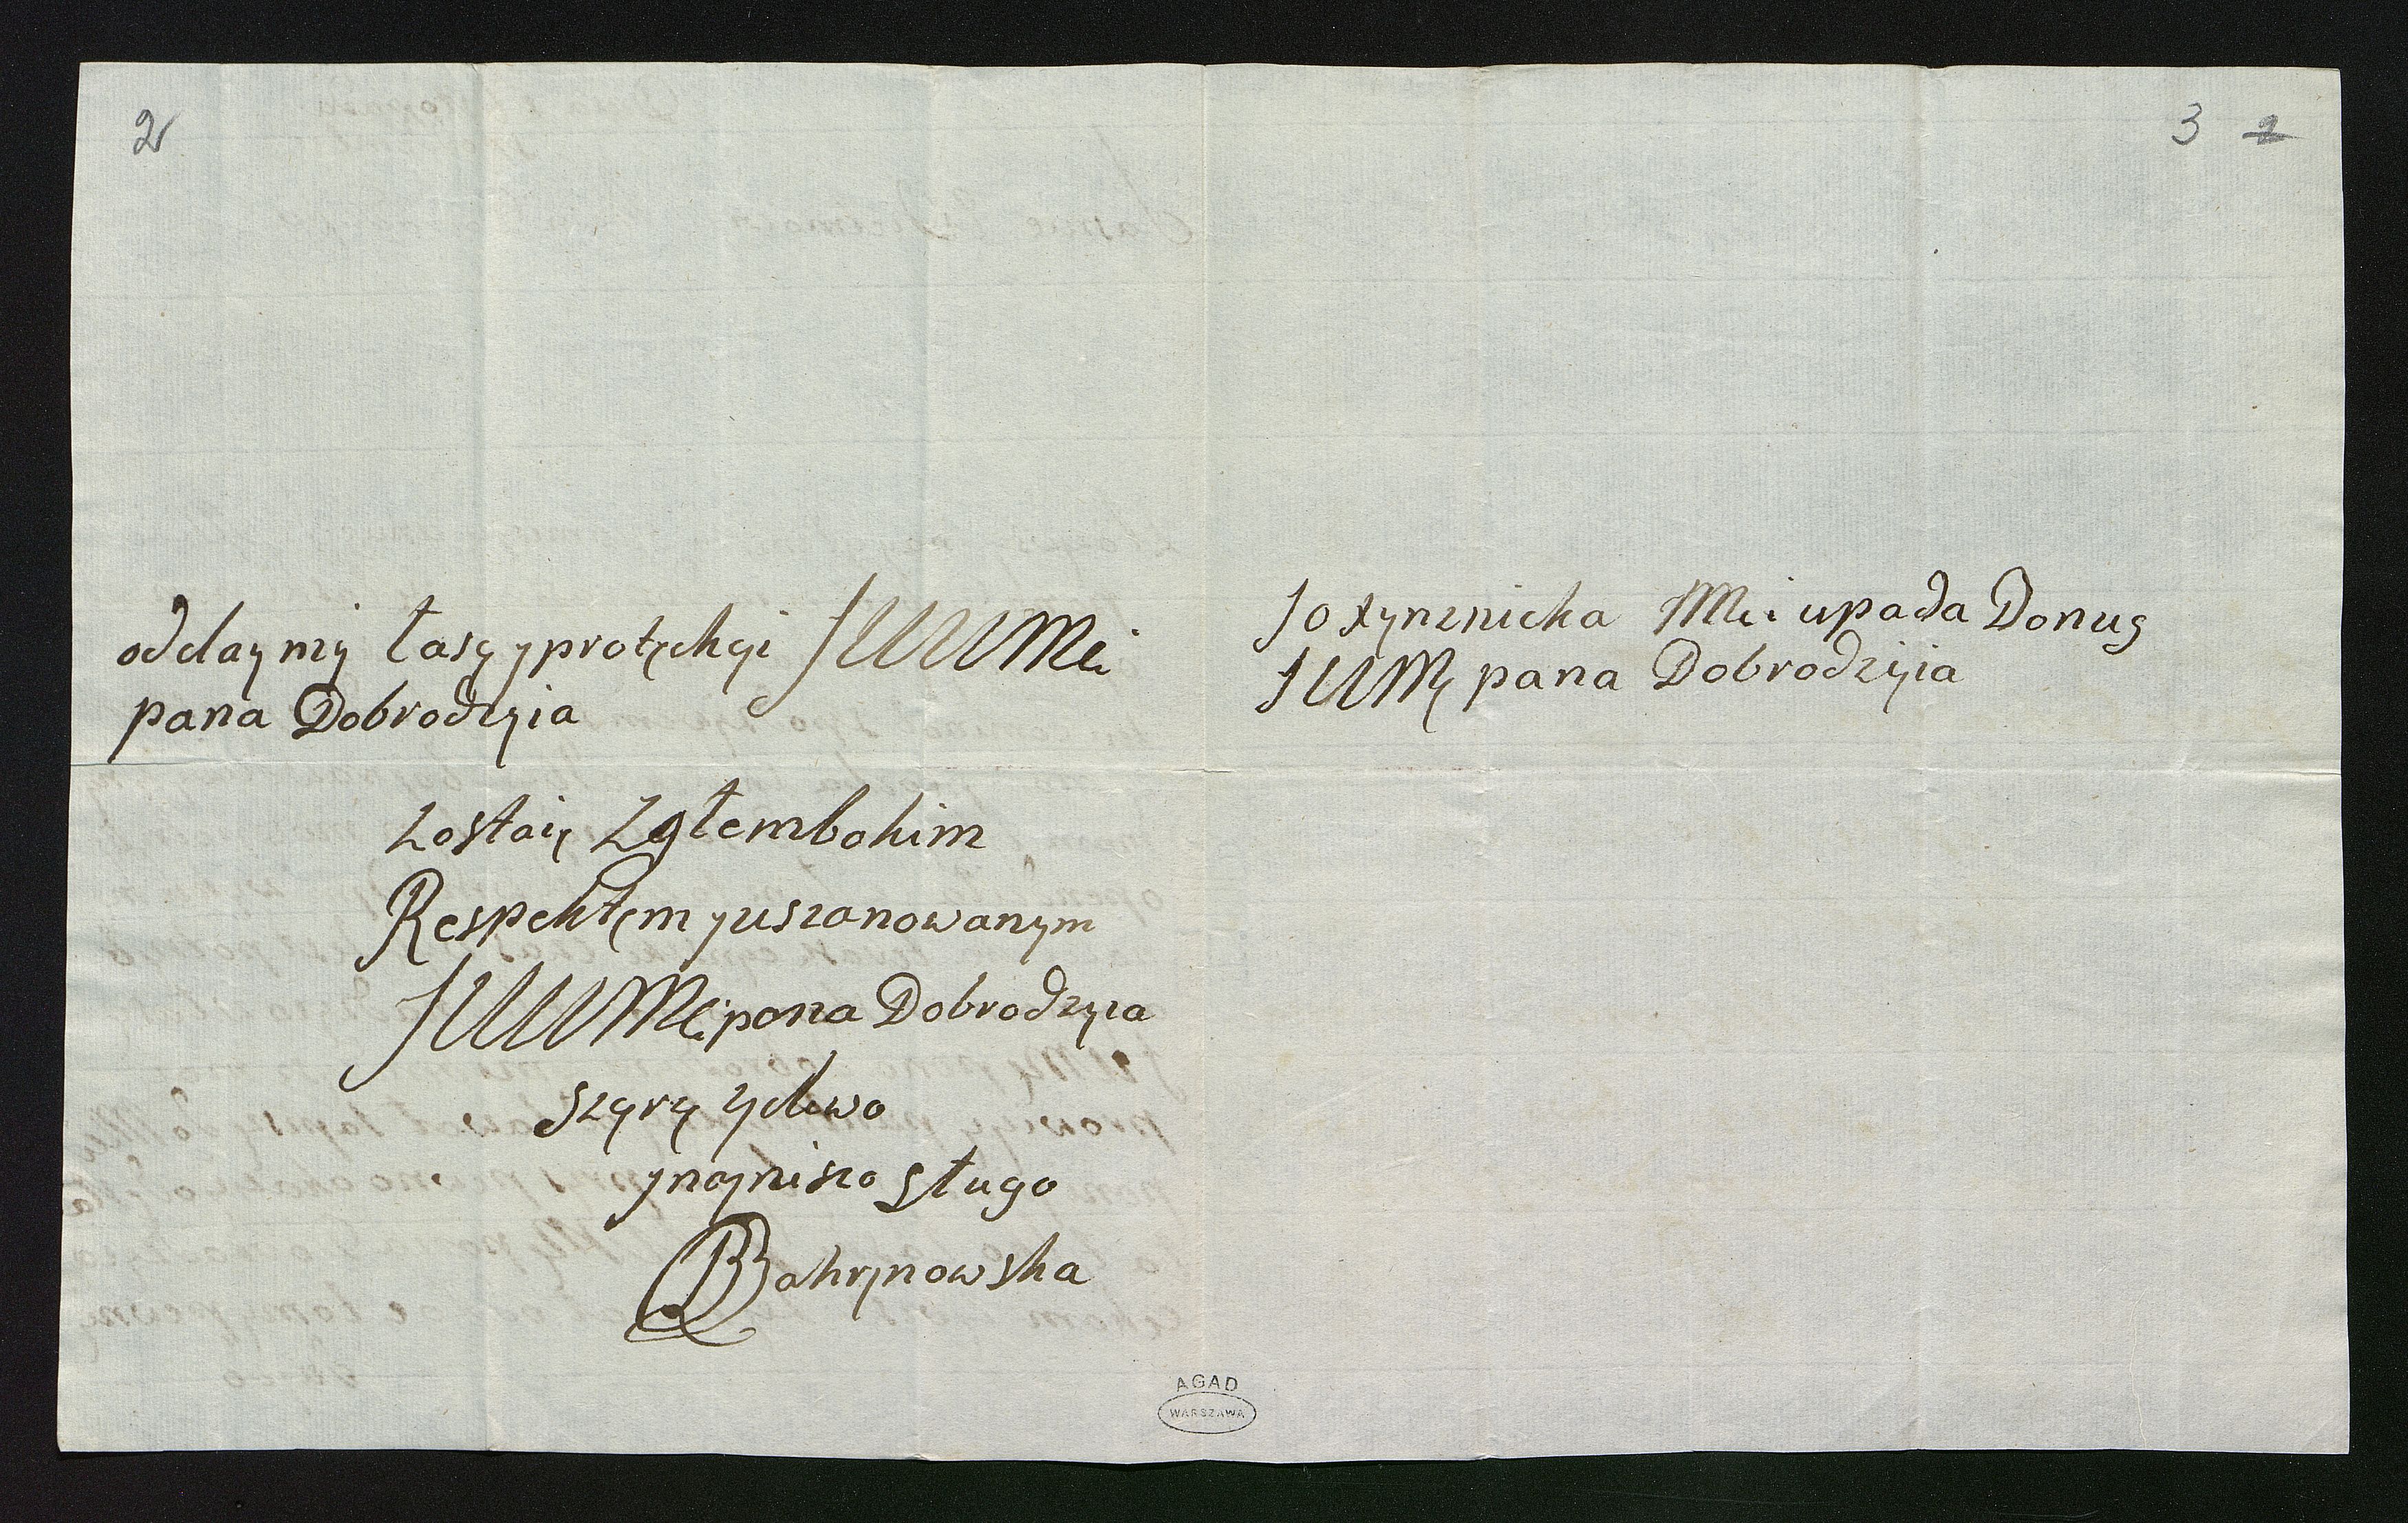 2
odday mÿ łasÿ y protÿkcyi JWWMci
pana Dobrodzyia
zostaię Zgłembokim
Respektem yuszanowanym
JWWMci pana Dobrodzyia
szyrÿ zyliwo
ynaynisza sługo
Bakrynowska
3 2
Jo Xynznicka Mci upada Donug
JWMÿ pana Dobrodzyia
AGAD
WARSZAWA